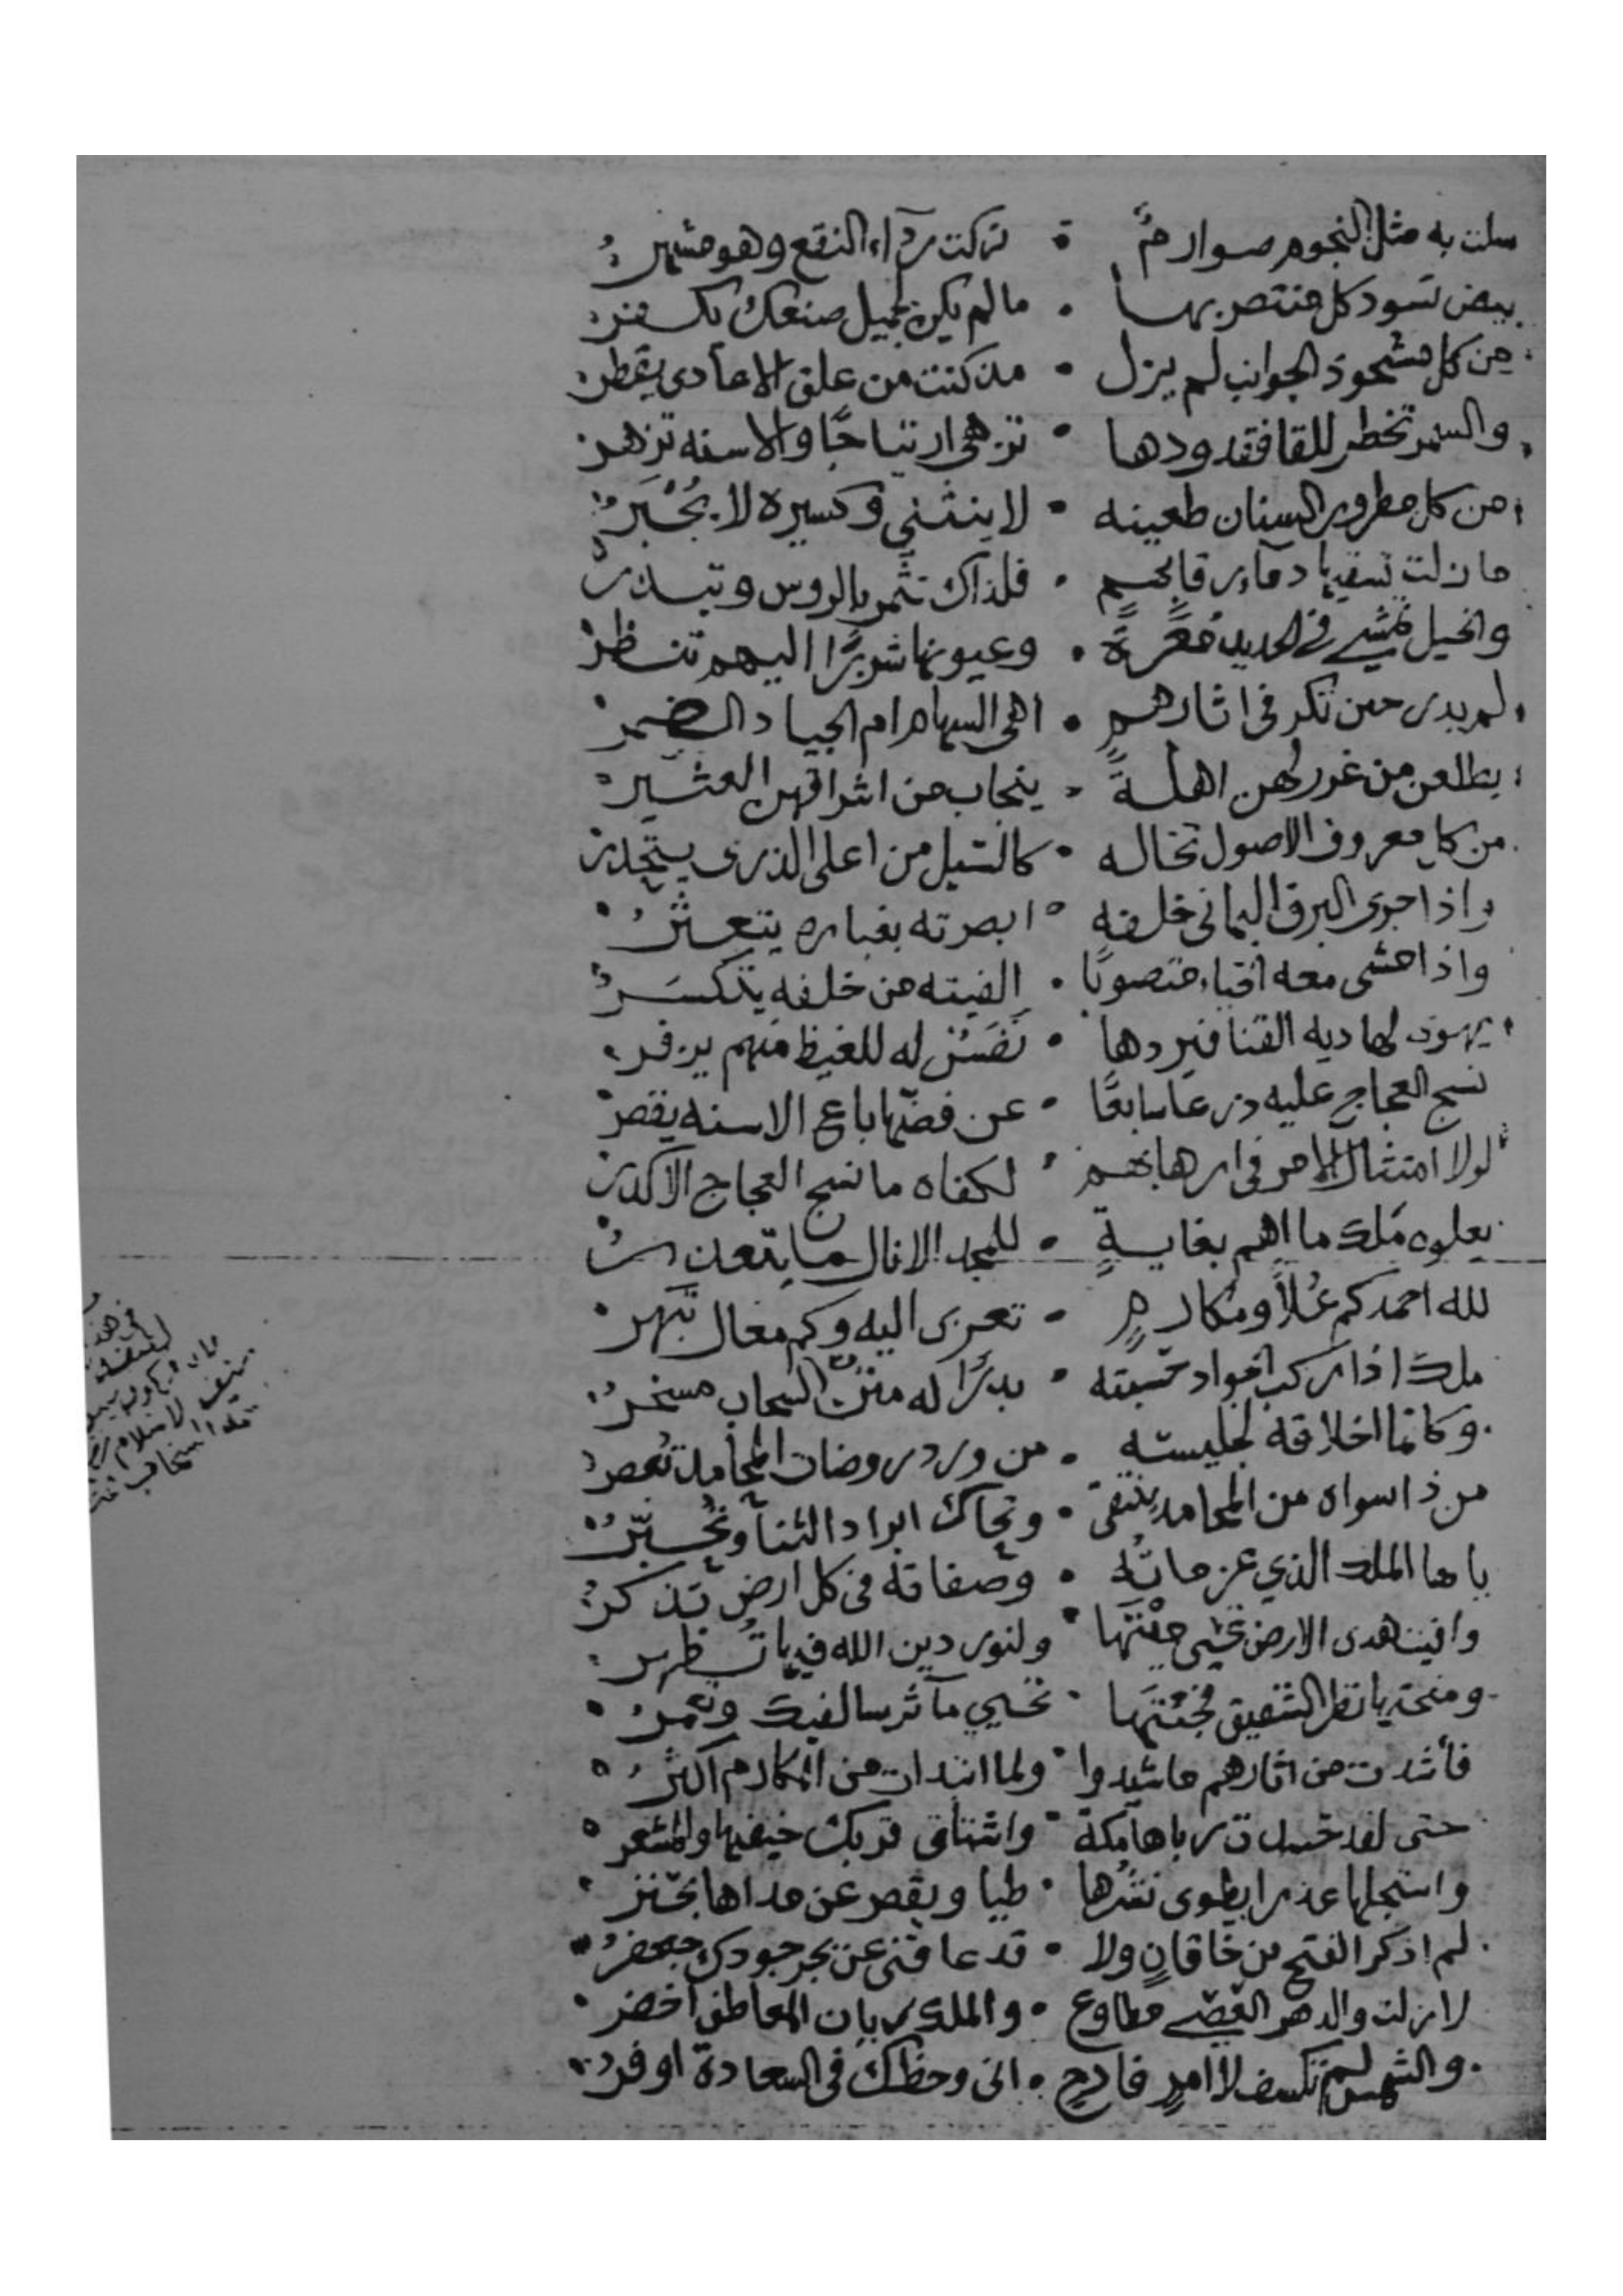 سلت به مثل النجوم صوارم تركت رداء النقع وهو مشهر
بيض تسود كل منتصر بها مالم يكن بجميل صنعك يكفر
من كل مشحوذ الجوانب لم يزل مذ كنت من علق الاعادى يقطر
والسمر تخطر للقا فقدودها تزهى ارتياحًا والاسنه تزهر
من كل مطرور السنان طعينه لا ينثنى وكسيره لا يُجْبَرُ
ما زلت تسقيها دماء رقابهم فلذاك تثمر بالروس وتبدر
والخيل تمشي في الحديد وعيونها شزرًا اليهم تنظر
لم يدر حين تكر فى اثارهم اهى السهام ام الجياد الضمر
يطلعن من غرر لهن اهلةً ينجاب من اشراقهن العثير
من كل معروف الاصول تخاله كالسيل من اعلى الذرى يتحدر
واذا جرى البرق اليمانى خلفه ابصرته بغباره يتعثر
واذا مشى معه الفيته من خلفه يتكسر
لهاديه القنا فيردها نَفَسٌ له للغيظ منهم يزفر
نسج العجاج عليه درعا سابغًا عن فضّها باع الاسنه يقصر
لولا امتثال الامر فى ارهابهم لكفاه ما نسج العجاج الاكدر
يعلوه ملك ما اهم بغايةٍ للمجد الا نال ما يتعذر
لله احمد كم عُلاً ومكارمٍ تعزى اليه وكم معال تبهر
ملك اذا ركب الجواد حسبته بدرًا له متن السحاب مسخر
وكانما اخلاقه لجليسه من ورد روضات المحامد تعصر
من ذا سواه من المحامد ينتقى وتحاك ابراد الثنا وتحبّر
يا ها الملك الذي عزماته وصفاته فى كل ارض تذكر
وافيت هدى الارض تحيى ميْتَها ولنور دين الله فيها تُظهر
ومنحتها نظر الشفيق فجئتها تحيي مآثر سالفيك وتعمر
فأشدت من اثارهم ما شيدوا ولما ابتدات من المكارم اكثر
حتى لقد مكة واشتاق قربك خيفها والمشعر
واستجلها عذرا يطوى نشرها طيا ويقصر عن مداها بحتر
لم اذكر الفتح بن خاقانٍ ولا قد عاقنى عن بحر جودك جعفر
لا زلت والدهر العصي مطاوع والملك ريان المعاطف اخضر
والشمس لم تكسف لامرٍ فادحٍ وحظك فى السعادة اوفر